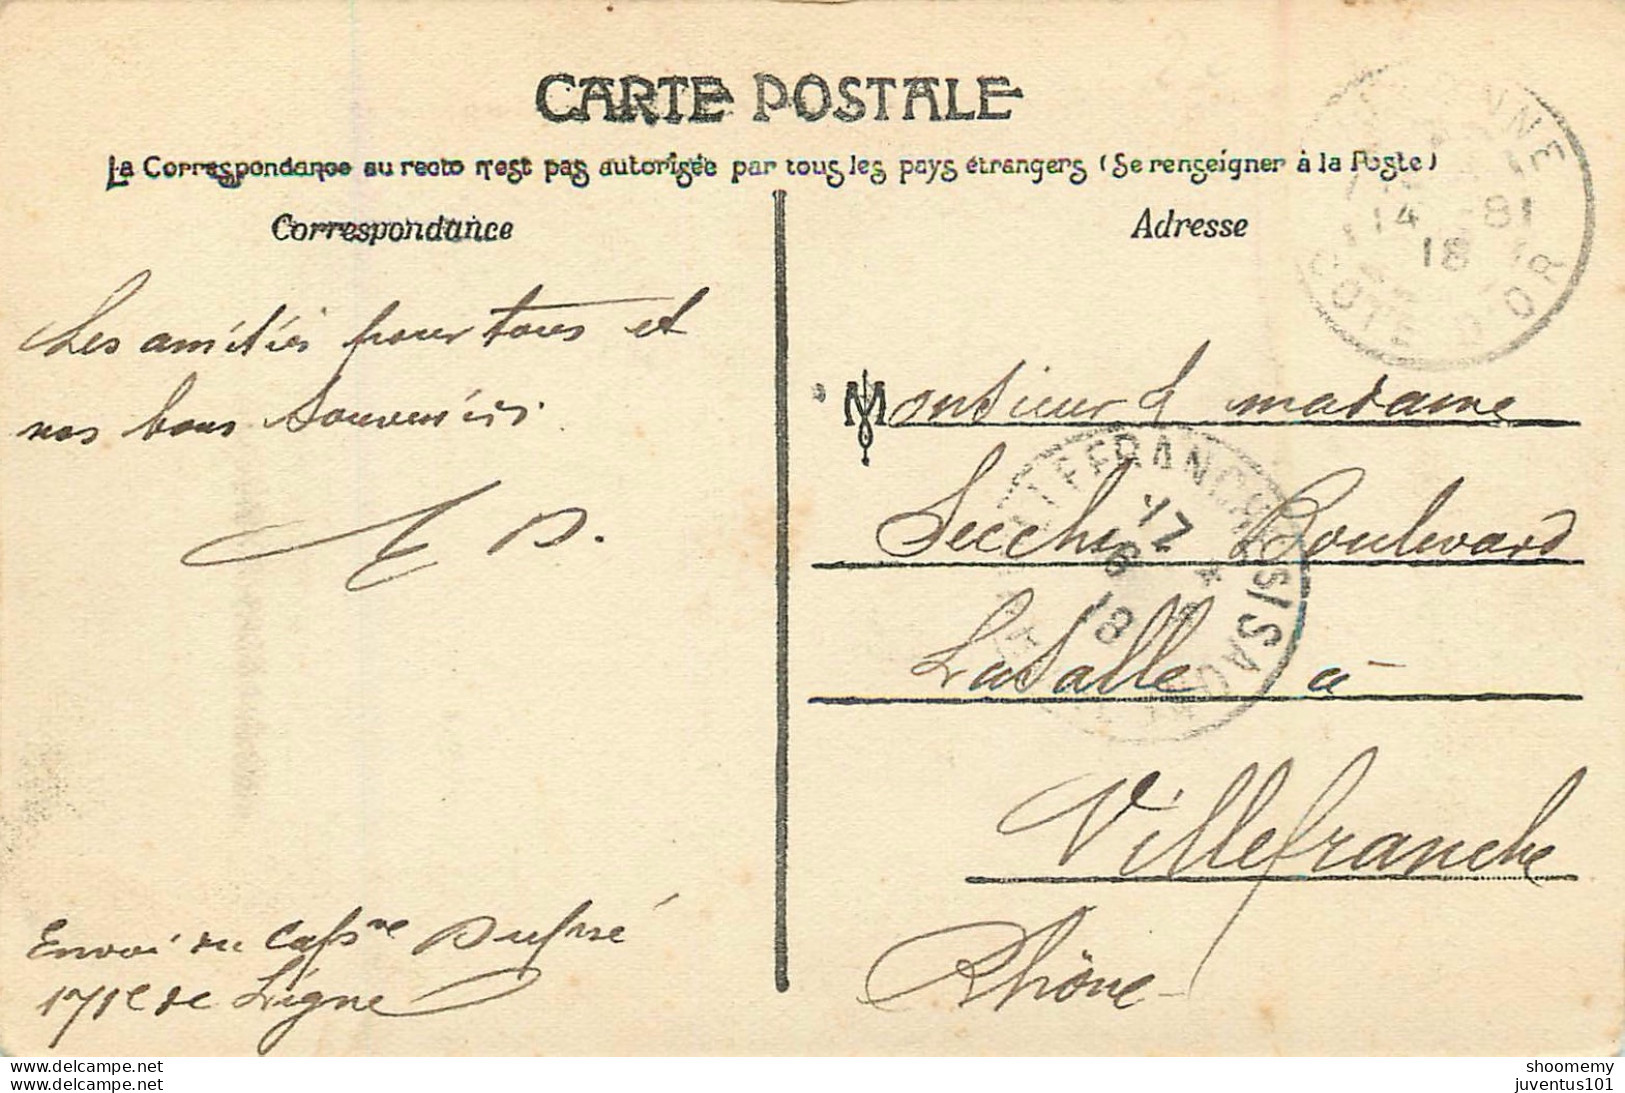 CARTE POSTALE
La Correspondance au recto n'est pas autorisée par tous les pays étrangers (Se renseigner à la Poste)
Correspondance
Adresse
14 - 8
18
CÔTE D'OR
Les amitiés pour tous et
nos bons souvenirs.
A D.
Monsieur & madame
Secchi Boulevard
LaSalle à
Villefranche
Rhône
VILLEFRANCHE S/SAONE
17
6
18
Envoi du Capne Dufné
171e de Ligne
delcampe.net
delcampe.net
shoomemy
juventus101